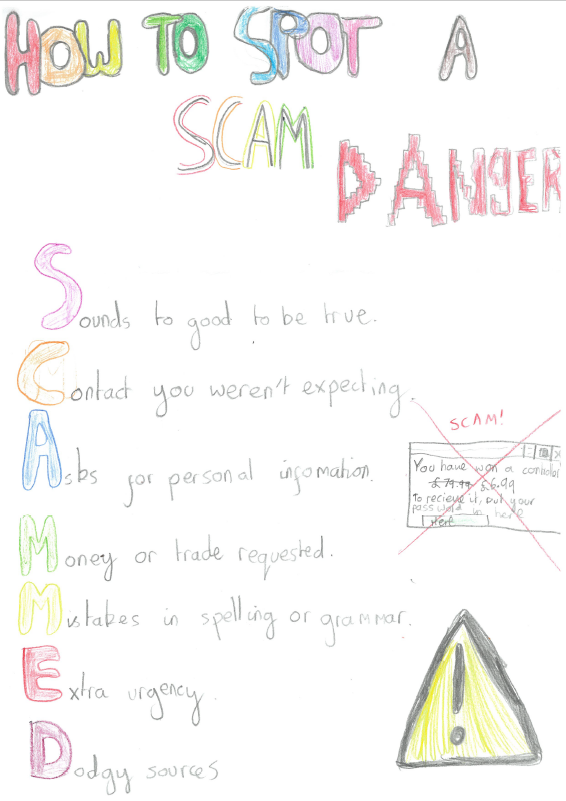 HOW TO SPOT A
SCAM
DANGER
Sounds to good to be true.
Contact you weren't expecting.
Asks for personal infomation.
Money or trade requested.
Mistakes in spelling or grammar.
Extra urgency.
Dodgy sources
SCAM!
You have won a controller
£79.99 £6.99
To recieve it, put your
password in here
Here
!